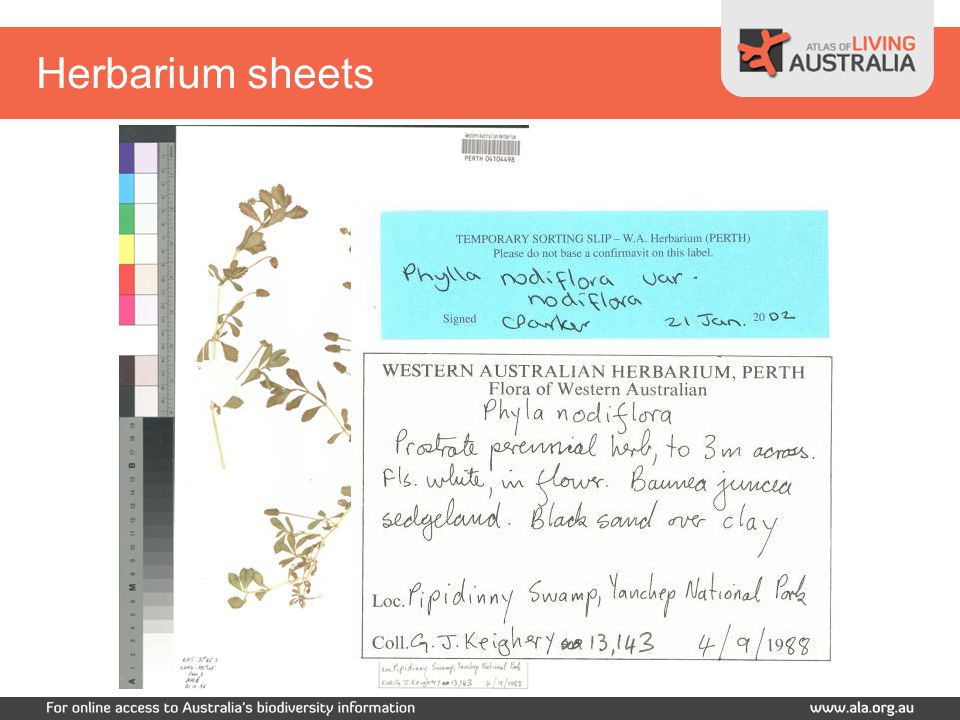 Herbarium sheets
ATLAS OF LIVING
AUSTRALIA
Western Australian Herbarium
PERTH 04104498
TEMPORARY SORTING SLIP – W.A. Herbarium (PERTH)
Please do not base a confirmavit on this label.
Phylla nodiflora var.
nodiflora
Signed CParker 21 Jan. 20 02
WESTERN AUSTRALIAN HERBARIUM, PERTH
Flora of Western Australian
Phyla nodiflora
Prostrate perennial herb, to 3m across.
Fls. white, in flower. Baumea juncea
sedgeland. Black sand over clay
Loc. Pipidinny Swamp, Yanchep National Park
Coll. G. J. Keighery 13,143 4/9/1988
Loc. Pipidinny Swamp, Yanchep National Park
Coll. G. J. Keighery 13,143 4/9/1988
For online access to Australia's biodiversity information
www.ala.org.au